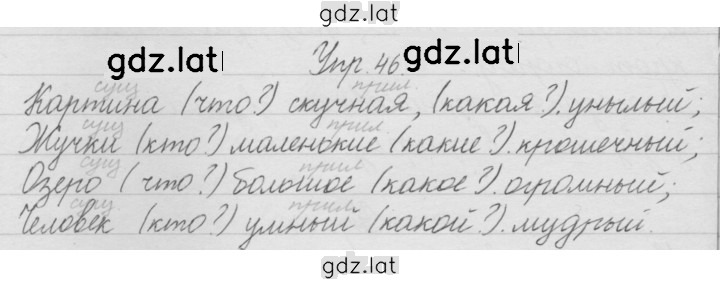 gdz.lat
gdz.lat gdz.lat
Упр. 46.
сущ прил.
Картина (что?) скучная, (какая?). унылый;
сущ прил.
Жучки (кто?) маленькие (какие?). крошечный;
сущ прил.
Озеро (что?) большое (какое?). огромный;
сущ прил.
Человек (кто?) умный (какой?). мудрый.
gdz.lat